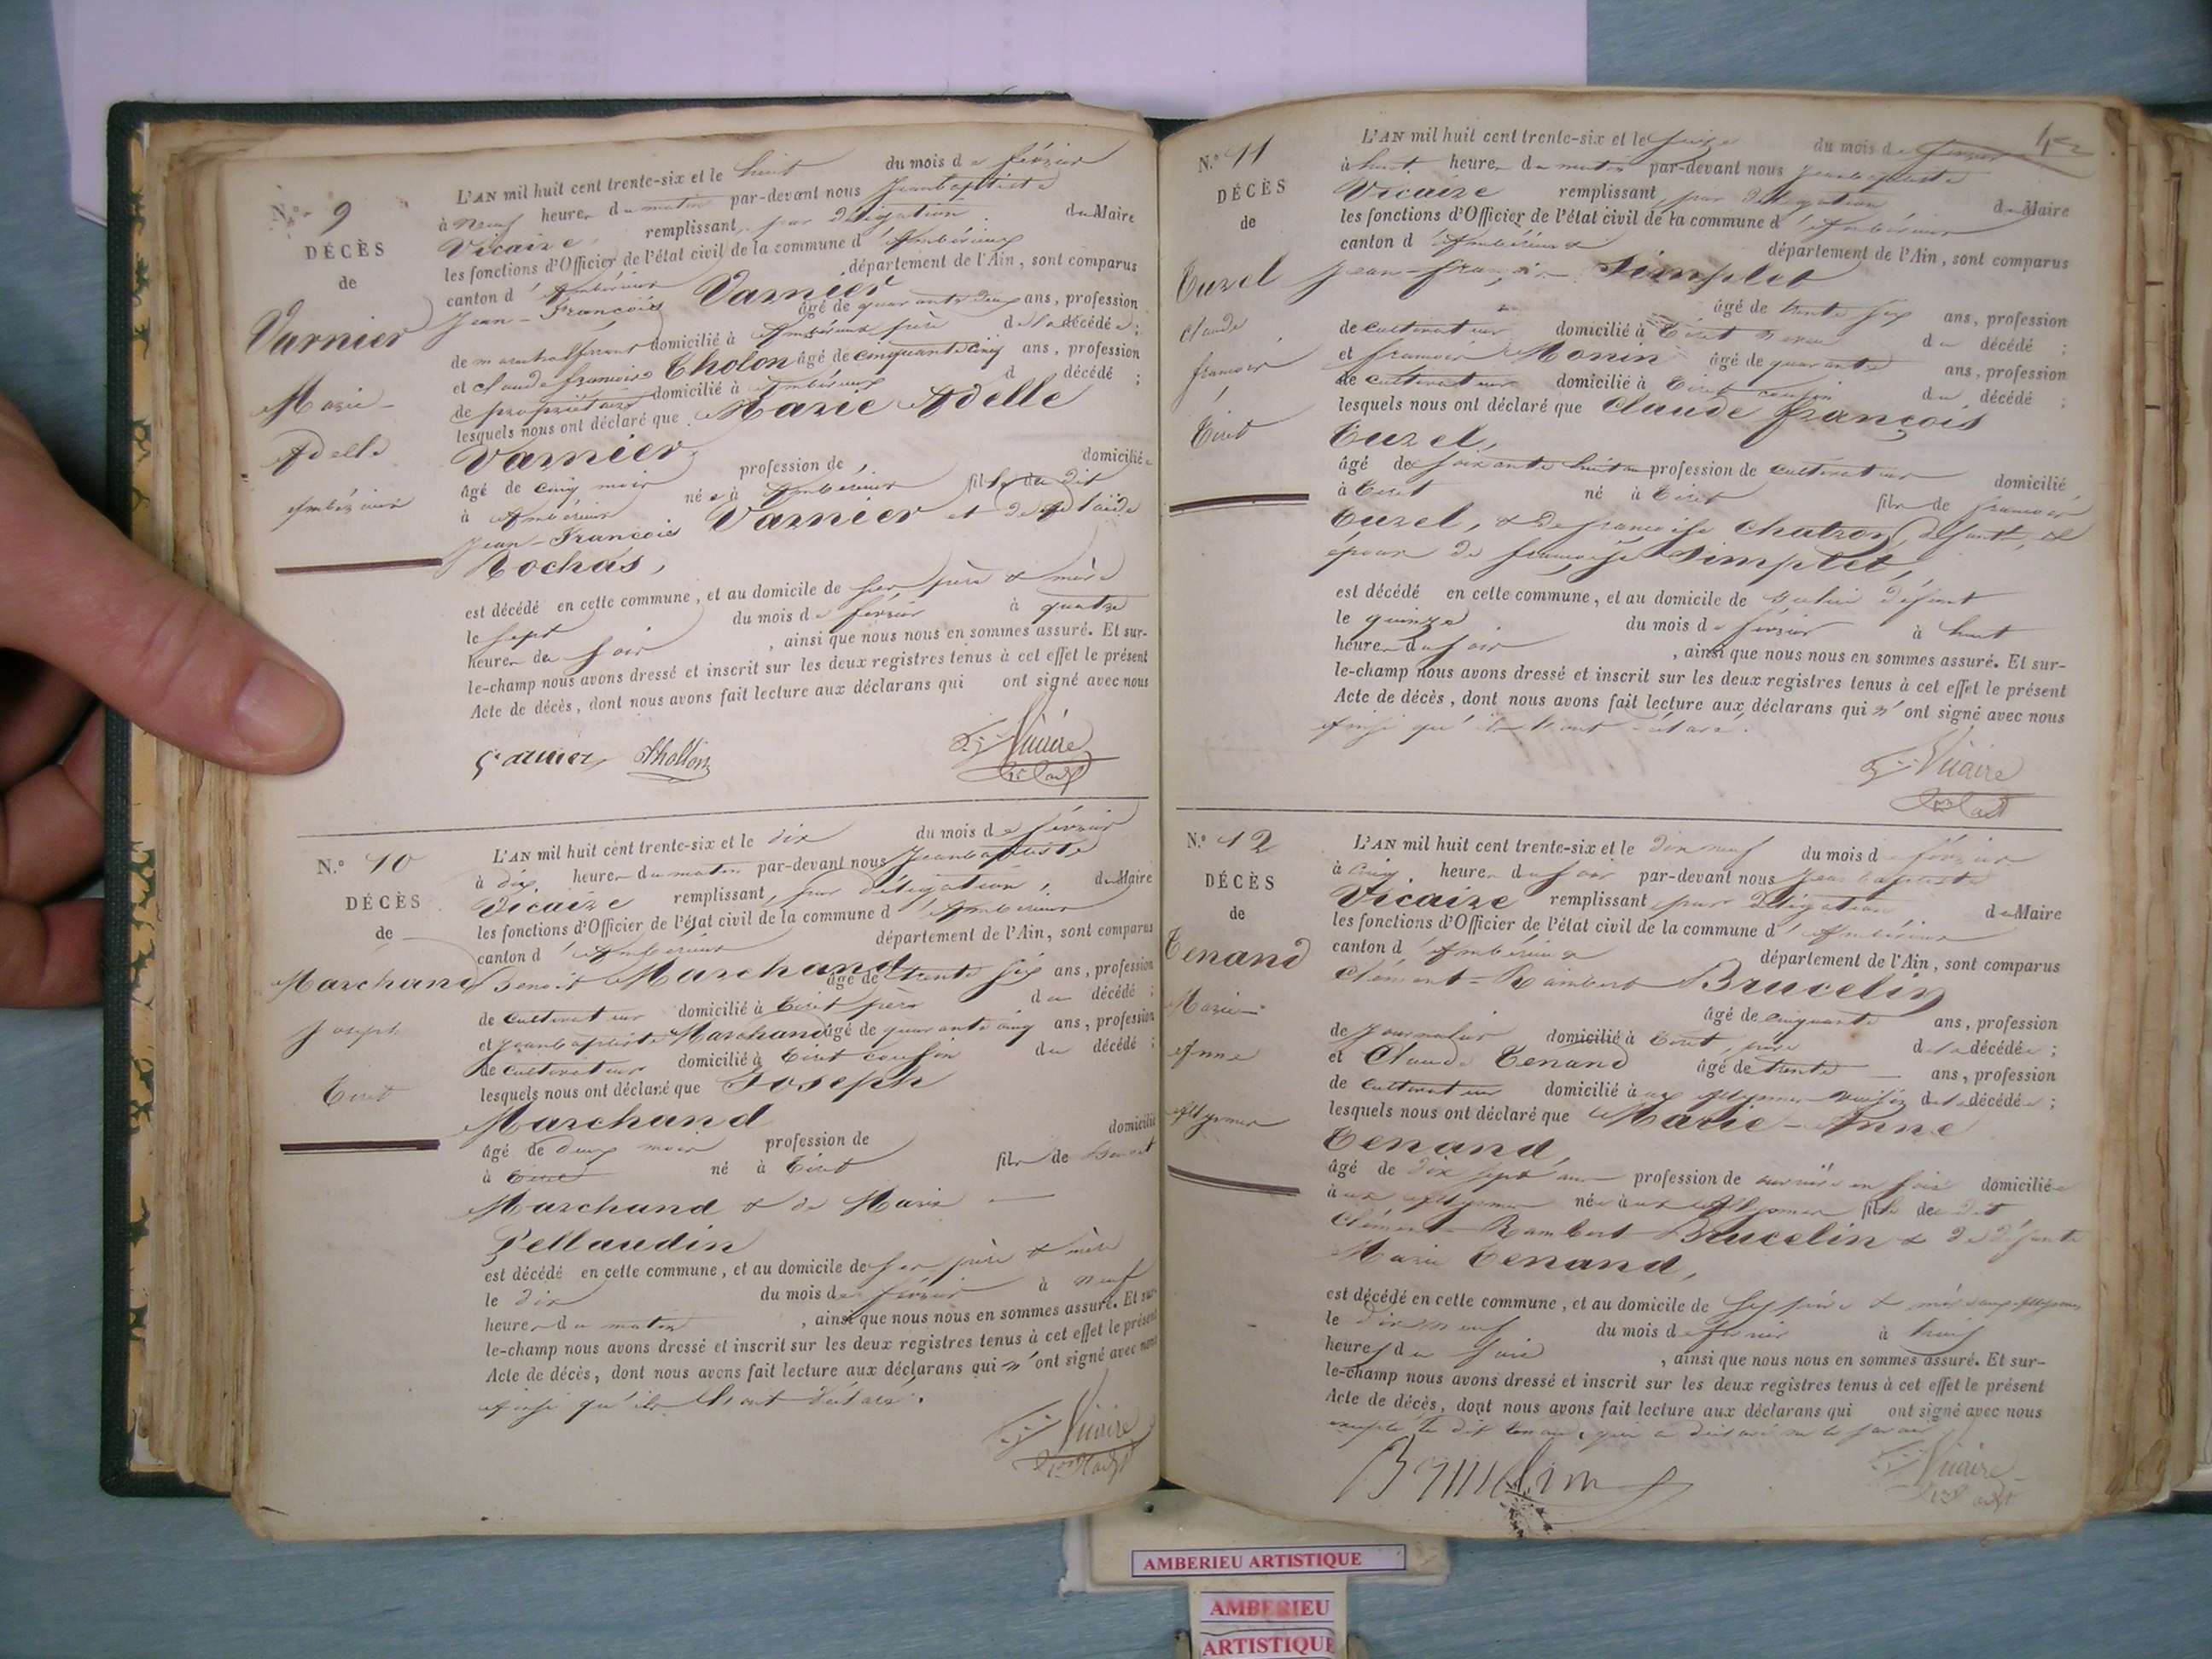 N.º 9
DÉCÈS
de
Varnier
Marie
Adelle
Ambérieux
L'AN mil huit cent trente-six et le huit du mois de février
à neuf heures du matin par-devant nous Jean baptiste
Vicaire remplissant, par délégation du Maire
les fonctions d'Officier de l'état civil de la commune d'Ambérieux
canton d'Ambérieux département de l'Ain, sont comparus
Jean-François Varnier âgé de quarante deux ans, profession
de domicilié à Ambérieux père de la décédée;
et claude françois Tholon âgé de cinquante cinq ans, profession
de propriétaire domicilié à Ambérieux d décédé ;
lesquels nous ont déclaré que Marie Adelle
Varnier,
âgé de cinq mois profession de domiciliée
à Ambérieux née à Ambérieux fille du dit
Jean-François Varnier et de Adelaïde
Rochas,
est décédé en cette commune, et au domicile de ses père & mère
le sept du mois de février à quatre
heures du soir , ainsi que nous nous en sommes assuré. Et sur-
le-champ nous avons dressé et inscrit sur les deux registres tenus à cet effet le présent
Acte de décès, dont nous avons fait lecture aux déclarans qui ont signé avec nous
Varnier Thollon Vicaire
N.º 10
DÉCÈS
de
Marchand
Joseph
Tiret
L'AN mil huit cent trente-six et le dix du mois de février
à dix heures du matin par-devant nous Jean baptiste
Vicaire remplissant, par délégation, du Maire
les fonctions d'Officier de l'état civil de la commune d'Ambérieux
canton d'Ambérieux département de l'Ain, sont comparus
Benoit Marchand âgé de trente six ans, profession
de cultivateur domicilié à Tiret père du décédé ;
et Jean baptiste Marchand âgé de quarante cinq ans, profession
de cultivateur domicilié à Tiret cousin du décédé ;
lesquels nous ont déclaré que Joseph
Marchand
âgé de deux mois profession de domicilié
à Tiret né à Tiret fils de Benoit
Marchand & de Marie
Pellaudin
est décédé en cette commune, et au domicile de ses père & mère
le dix du mois de février à neuf
heures du matin , ainsi que nous nous en sommes assuré. Et sur-
le-champ nous avons dressé et inscrit sur les deux registres tenus à cet effet le présent
Acte de décès, dont nous avons fait lecture aux déclarans qui n'ont signé avec nous
ainsi qu'ils l'ont déclaré.
Vicaire
N.º 11
DÉCÈS
de
Tuzel
claude
françois
Tiret
L'AN mil huit cent trente-six et le seize du mois de février
à huit heures du matin par-devant nous Jean baptiste
Vicaire remplissant, par délégation du Maire
les fonctions d'Officier de l'état civil de la commune d'Ambérieux
canton d'Ambérieux département de l'Ain, sont comparus
Jean-françois Simplet
âgé de trente six ans, profession
de cultivateur domicilié à Tiret neveu du décédé ;
et françois Monin âgé de quarante ans, profession
de cultivateur domicilié à Tiret cousin du décédé ;
lesquels nous ont déclaré que Claude françois
Tuzel,
âgé de soixante huit ans profession de cultivateur domicilié
à Tiret né à Tiret fils de françois
Tuzel, & de françoise Chatron, défunts, et
époux de françoise Simplet,
est décédé en cette commune, et au domicile de défunt
le quinze du mois de février à huit
heures du soir , ainsi que nous nous en sommes assuré. Et sur-
le-champ nous avons dressé et inscrit sur les deux registres tenus à cet effet le présent
Acte de décès, dont nous avons fait lecture aux déclarans qui n'ont signé avec nous
ainsi qu'ils l'ont déclaré.
Vicaire
N.º 12
DÉCÈS
de
Tenand
Marie
Anne
Allymes
L'AN mil huit cent trente-six et le dix neuf du mois de février
à cinq heures du soir par-devant nous Jean baptiste
Vicaire remplissant, par délégation du Maire
les fonctions d'Officier de l'état civil de la commune d'Ambérieux
canton d'Ambérieux département de l'Ain, sont comparus
Clément-Rambert Brucelin
âgé de cinquante ans, profession
de journalier domicilié à Tiret père de la décédée ;
et Claude Tenand âgé de trente ans, profession
de cultivateur domicilié à aux Allymes voisin de la décédée ;
lesquels nous ont déclaré que Marie-Anne
Tenand,
âgé de dix sept ans profession de ouvrière en soie domiciliée
à aux Allymes née à aux Allymes fille du dit
Clément-Rambert Brucelin & de défunte
Marie Tenand,
est décédé en cette commune, et au domicile de ses père & mère aux Allymes
le dix neuf du mois de février à trois
heures du soir , ainsi que nous nous en sommes assuré. Et sur-
le-champ nous avons dressé et inscrit sur les deux registres tenus à cet effet le présent
Acte de décès, dont nous avons fait lecture aux déclarans qui ont signé avec nous
excepté le dit Tenand, qui a déclaré ne le savoir
Brucelin Vicaire
AMBERIEU ARTISTIQUE
AMBERIEU
ARTISTIQUE